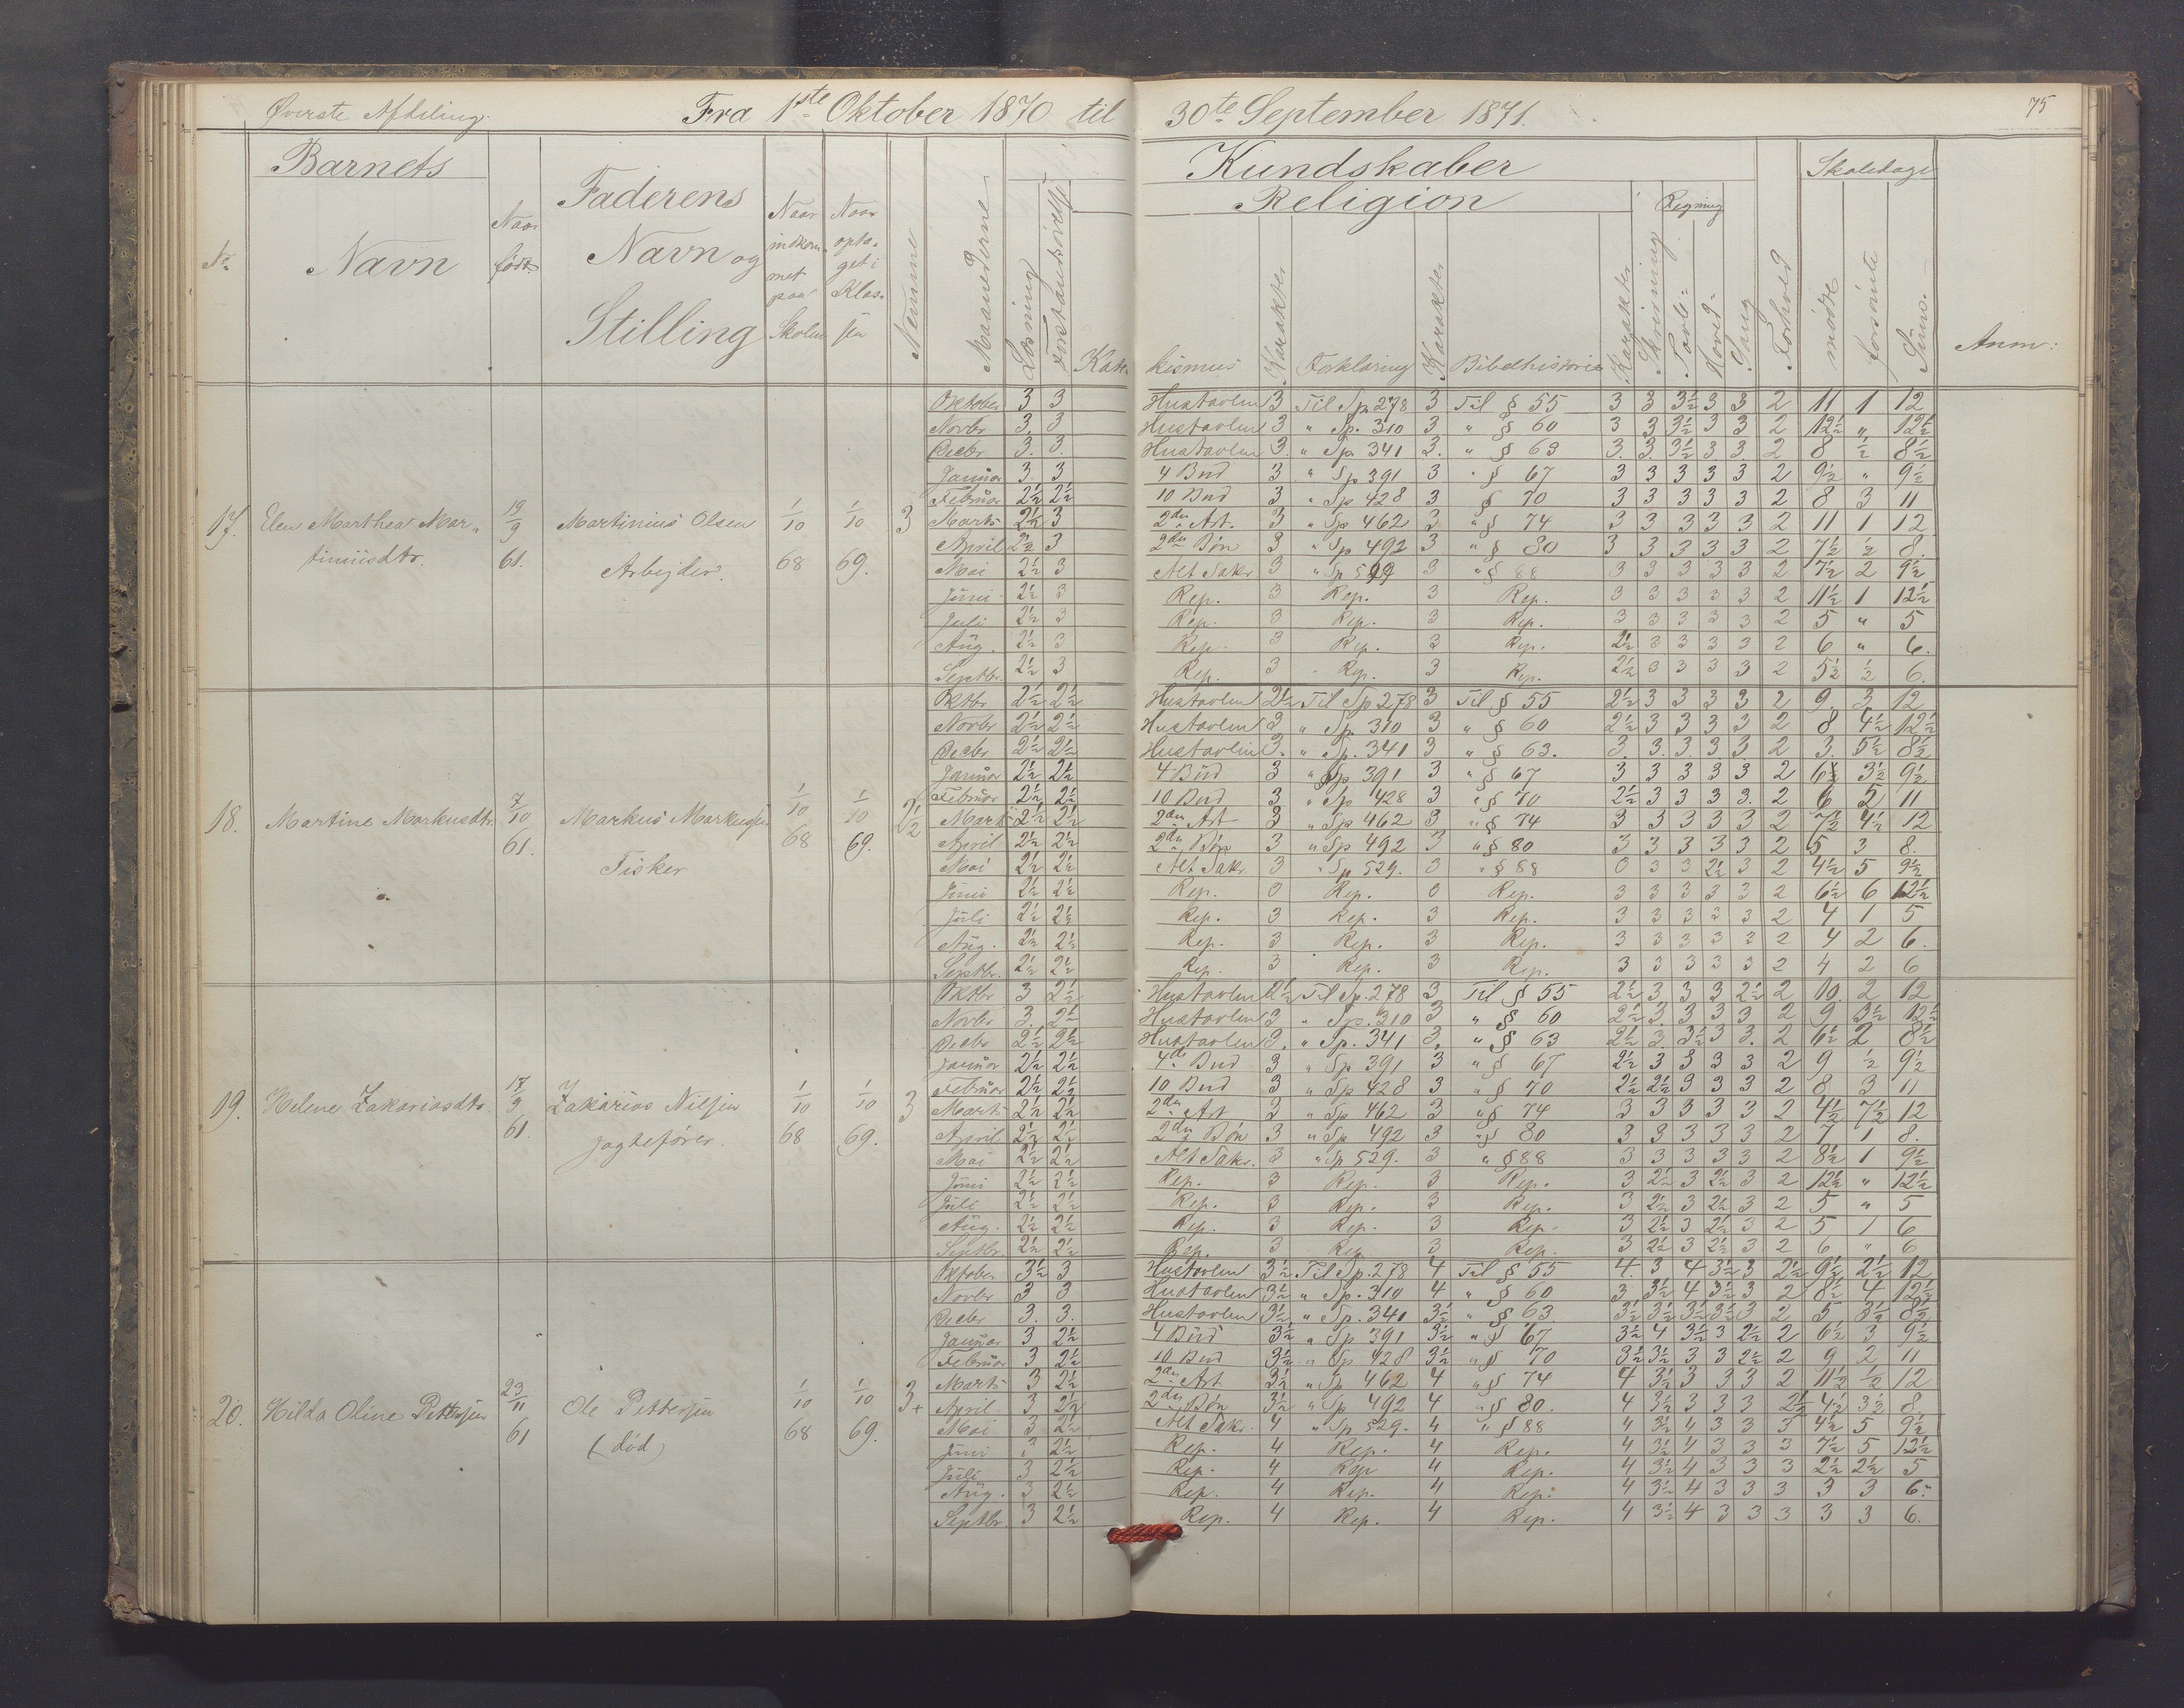 Øverste Afdeling. Fra 1ste Oktober 1870 til 30te September 1871. 75
Barnets Kundskaber Skoledage
Faderens Religion Regning
No Navn Naar født Navn og Stilling Naar indkommet paa Skolen Naar optaget i Klassen Nemme Maanederne Læsning Forstandsøvelse Katekismus Karakter Forklaring Karakter Bibelhistorie Karakter Skrivning Tavle- Hoved- Sang Forhold mødte forsømte Sum. Anm:
17. Elen Marthea Martiniusdtr. 19/9 61. Martinius Olsen Arbejder. 1/10 68 1/10 69. 3
Oktober 3 3 Hustavlen 3 Til Sp. 278 3 Til § 55 3 3 3½ 3 3 2 11 1 12
Novbr 3. 3 Hustavlen 3 " Sp. 310 3 " § 60 3 3 3½ 3 3 2 12½ " 12½
Decbr 3. 3. Hustavlen 3. " Sp. 341 3. " § 63 3. 3. 3½ 3. 3. 2 8 ½ 8½
Januar 3 3 4 Bud 3 " Sp 391 3 " § 67 3 3 3 3 3 2 9½ " 9½
Februar 2½ 2½ 10 Bud 3 " Sp 428 3 § 70 3 3 3 3 3 2 8 3 11
Marts 2½ 3 2den Art. 3 " Sp 462 3 " § 74 3 3 3 3 3 2 11 1 12
April 2½ 3 2den Bøn 3 " Sp 492 3 " § 80 3 3 3 3 3 2 7½ ½ 8.
Mai 2½ 3 Alt Sakr 3 " Sp 529 3 " § 88 3 3 3 3 3 2 7½ 2 9½
Juni 2½ 3 Rep. 3 Rep. 3 Rep. 3 3 3 3 3 2 11½ 1 12½
Juli 2½ 3 Rep. 3 Rep. 3 Rep. 3 3 3 3 3 2 5 " 5
Aug. 2½ 3 Rep. 3 Rep. 3 Rep. 2½ 3 3 3 3 2 6 " 6.
Septbr. 2½ 3 Rep. 3 Rep. 3 Rep. 2½ 3 3 3 3 2 5½ ½ 6.
18. Martine Markusdtr. 7/10 61. Markus Markussen Fisker 1/10 68 1/10 69. 2½
Oktbr 2½ 2½ Hustavlen 2½ Til Sp 278 3 Til § 55 2½ 3 3 3 3 2 9. 3 12
Novbr 2½ 2½ Hustavlen 3 " Sp. 310 3 " § 60 2½ 3 3 3 3 2 8 4½ 12½
Decbr 2½ 2½ Hustavlen 3. " Sp. 341 3 " § 63. 3. 3. 3 3 3 2 3. 5½ 8½
Januar 2½ 2½ 4 Bud 3 " Sp 391 3 " § 67 3 3 3 3 3 2 6½ 3½ 9½
Februar 2½ 2½ 10 Bud 3 " Sp 428 3 " § 70 2½ 3 3 3 3. 2 6 5 11
Marts 2½ 2½ 2den Art 3 " Sp 462 3 " § 74 3 3 3 3 3 2 7½ 4½ 12
April 2½ 2½ 2den Bøn 3 " Sp 492 3 " § 80 3 3 3 3 3 2 5 3 8.
Mai 2½ 2½ Alt Sakr. 3 " Sp 529. 0 " § 88 0 3 3 2½ 3 2 4½ 5 9½
Juni 2½ 2½ Rep. 0 Rep. 0 Rep. 3 3 3 3 3 2 6½ 6 12½
Juli 2½ 2½ Rep. 3 Rep. 3 Rep. 3 3 3 3 3 2 4 1 5
Aug. 2½ 2½ Rep. 3 Rep. 3 Rep. 3 3 3 3 3 2 4 2 6.
Septbr. 2½ 2½ Rep. 3 Rep. 3 Rep. 3 3 3 3 3 2 4 2 6
19. Helene Zakariasdtr. 17/9 61. Zakarias Nilsen Jagtefører. 1/10 68 1/10 69. 3
Oktbr 3 2½ Hustavlen 2½ Til Sp. 278 3 Til § 55 2½ 3 3 3 2½ 2 10. 2 12
Novbr 3. 2½ Hustavlen 3 " Sp. 310 3 " § 60 2½ 3. 3 3 3 2 9 3½ 12½
Decbr 2½ 2½ Hustavlen 3. " Sp. 341 3. " § 63 2½ 3. 3½ 3 3. 2 6½ 2 8½
Januar 2½ 2½ 4de Bud 3 " Sp 391 3 " § 67 2½ 3 3 3 3 2 9 ½ 9½
Februar 2½ 2½ 10 Bud 3 " Sp 428 3 " § 70 2½ 2½ 3 3 3 2 8 3 11
Marts 2½ 2½ 2den Art 3 " Sp 462 3 " § 74 3 3 3 3 3 2 4½ 7½ 12
April 2½ 2½ 2den Bøn 3 " Sp 492 3 " § 80 3 3 3 3 3 2 7 1 8.
Mai 2½ 2½ Alt Sakr. 3 " Sp 529. 3 " § 88 3 3 3 3 3 2 8½ 1 9½
Juni 2½ 2½ Rep. 3 Rep. 3 Rep. 3 2½ 3 2½ 3 2 12½ " 12½
Juli 2½ 2½ Rep. 3 Rep. 3 Rep. 3 2½ 3 2½ 3 2 5 " 5
Aug. 2½ 2½ Rep. 3 Rep. 3 Rep. 3 2½ 3 2½ 3 2 5 1 6
Septbr. 2½ 2½ Rep. 3 Rep. 3 Rep. 3 2½ 3 2½ 3 2 6 " 6
20. Hilda Oline Pettersen 23/11 61 Ole Pettersen (død) 1/10 68 1/10 69. 3+
Oktober 3½ 3 Hustavlen 3½ Til Sp. 278 4 Til § 55 4. 3 4 3½ 3 2½ 9½ 2½ 12
Novbr 3 3 Hustavlen 3½ " Sp. 310 4 " § 60 3 3½ 4 3½ 3 2 8½ 4 12½
Decbr 3. 3. Hustavlen 3½ " Sp. 341 3½ " § 63. 3½ 3½ 3½ 3½ 3 2 5 3½ 8½
Januar 3 2½ 4 Bud 3½ " Sp 391 3½ " § 67 3½ 4 3½ 3 2½ 2 6½ 3 9½
Februar 3 2½ 10 Bud 3½ " Sp 428 3½ " § 70 3½ 3½ 3 3 2½ 2 9 2 11
Marts 3 2½ 2den Art 3½ " Sp 462 4 " § 74 4 3½ 3 3 3 2 11½ ½ 12
April 3 2½ 2den Bøn 3½ " Sp 492 4 " § 80. 4 3½ 3 3 3 2½ 4½ 3½ 8
Mai 3 2½ Alt Sakr. 4 " Sp 529. 4 " § 88 4 3½ 4 3 3 3 4½ 5 9½
Juni 3 2½ Rep. 4 Rep. 4 Rep. 4 3½ 4 3 3 3 7½ 5 12½
Juli 3 2½ Rep. 4 Rep 4 Rep. 4 3½ 4 3 3 3 2½ 2½ 5
Aug. 3 2½ Rep. 4 Rep. 4 Rep. 4 3½ 4 3 3 3 3 3 6.
Septbr. 3 2½ Rep. 4 Rep. 4 Rep. 4 3½ 4 3 3 3 3 3 6.